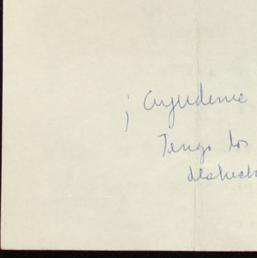 ¡ Ayudenme
Tengo los
deshech